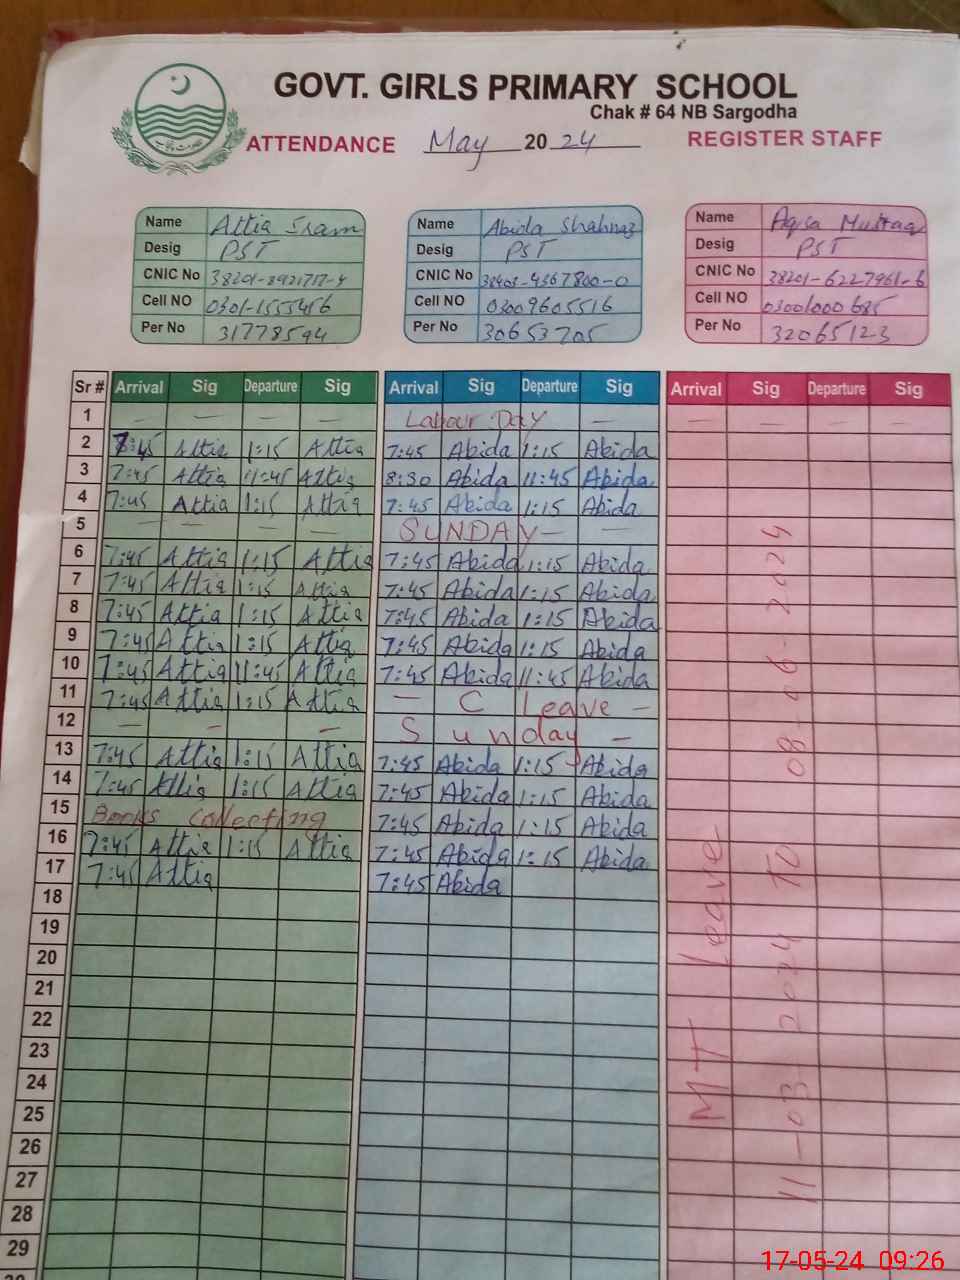 GOVT. GIRLS PRIMARY SCHOOL
Chak # 64 NB Sargodha
ATTENDANCE May 2024 REGISTER STAFF
Name Attia Iram Name Abida Shahnaz Name Aqsa Mustaq
Desig PST Desig PST Desig PST
CNIC No CNIC No CNIC No 38201-6227961-6
Cell NO 0301-1555456 Cell NO 03009605516 Cell NO 03001000685
Per No 31778594 Per No 30653705 Per No 32065123
Sr # Arrival Sig Departure Sig Arrival Sig Departure Sig Arrival Sig Departure Sig
1 — — — — Labour Day — — — — —
2 7:45 Attia 1:15 Attia 7:45 Abida 1:15 Abida
3 7:45 Attia 11:45 Attia 8:30 Abida 11:45 Abida
4 7:45 Attia 1:15 Attia 7:45 Abida 1:15 Abida
5 — — — — SUNDAY — —
6 7:45 Attia 1:15 Attia 7:45 Abida 1:15 Abida
7 7:45 Attia 1:15 Attia 7:45 Abida 1:15 Abida
8 7:45 Attia 1:15 Attia 7:45 Abida 1:15 Abida
9 7:45 Attia 1:15 Attia 7:45 Abida 1:15 Abida
10 7:45 Attia 11:45 Attia 7:45 Abida 11:45 Abida
11 7:45 Attia 1:15 Attia — C Leave —
12 — — — Sunday —
13 7:45 Attia 1:15 Attia 7:45 Abida 1:15 Abida
14 7:45 Attia 1:15 Attia 7:45 Abida 1:15 Abida
15 Books collecting 7:45 Abida 1:15 Abida
16 7:45 Attia 1:15 Attia 7:45 Abida 1:15 Abida
17 7:45 Attia 7:45 Abida
18
19
20
21
22
23
24
25
26
27
28
29
MTT Leave
11-03-2024 TO 08-06-2024
17-05-24 09:26